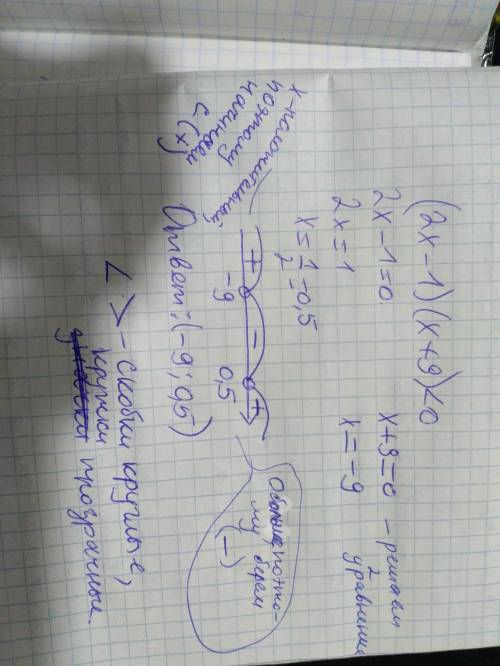 (2x-1)(x+9)<0
2x-1=0 x+9=0 - решаем 2 уравнения
2x=1 x=-9
x=1/2=0,5
x-положительный,
поэтому
начинаем
с (+)
+ - +
-9 0,5
0 больше поэто-
му берем
(-)
Ответ: (-9; 0,5)
< > - скобки круглые,
кружки
прозрачные.